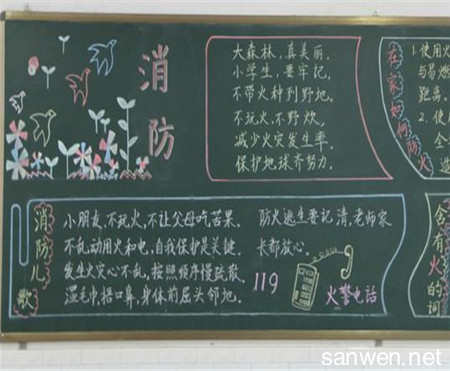 消防
大森林,真美丽.
小学生,要牢记,
不带火种到野地.
不玩火、不野炊.
减少火灾发生率.
保护地球齐努力.
在家如何防火
1.使用火
与易燃
距离.
2.使
全
选
消防儿歌
小朋友,不玩火,不让父母吃苦果.
不乱动用火和电,自我保护是关键.
发生火灾心不乱,按照顺序慢疏散.
湿毛巾捂口鼻,身体前屈头邻地.
防火逃生要记清,老师家
长都放心.
119
火警电话
含有火的词
sanwen.net